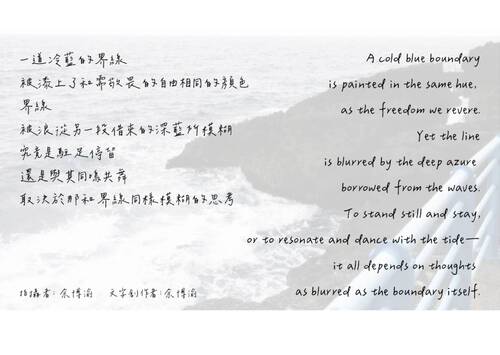 一道冷藍的界線
被漆上了和需敬畏的自由相同的顏色
界線
被浪從另一段借來的深藍所模糊
究竟是駐足停留
還是與其同鳴共舞
取決於那和界線同樣模糊的思考
拍攝者:余博瀚 文字創作者:余博瀚
A cold blue boundary
is painted in the same hue,
as the freedom we revere.
Yet the line
is blurred by the deep azure
borrowed from the waves.
To stand still and stay,
or to resonate and dance with the tide—
it all depends on thoughts
as blurred as the boundary itself.